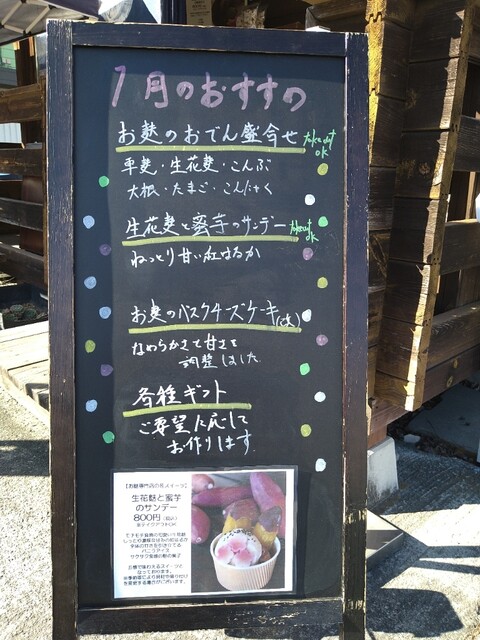 1月のおすすめ
お麩のおでん盛合せ takeout ok
車麩・生花麩・こんぶ
大根・たまご・こんにゃく
生花麩と蜜芋のサンデー takeout ok
ねっとり甘い紅はるか
お麩のバスクチーズケーキ
なめらかさと甘さを
調整しました
各種ギフト
ご要望に応じて
お作りします
【お麩専門店の花スイーツ】
生花麩と蜜芋
のサンデー
800円（税込）
※テイクアウトOK
バニラアイス